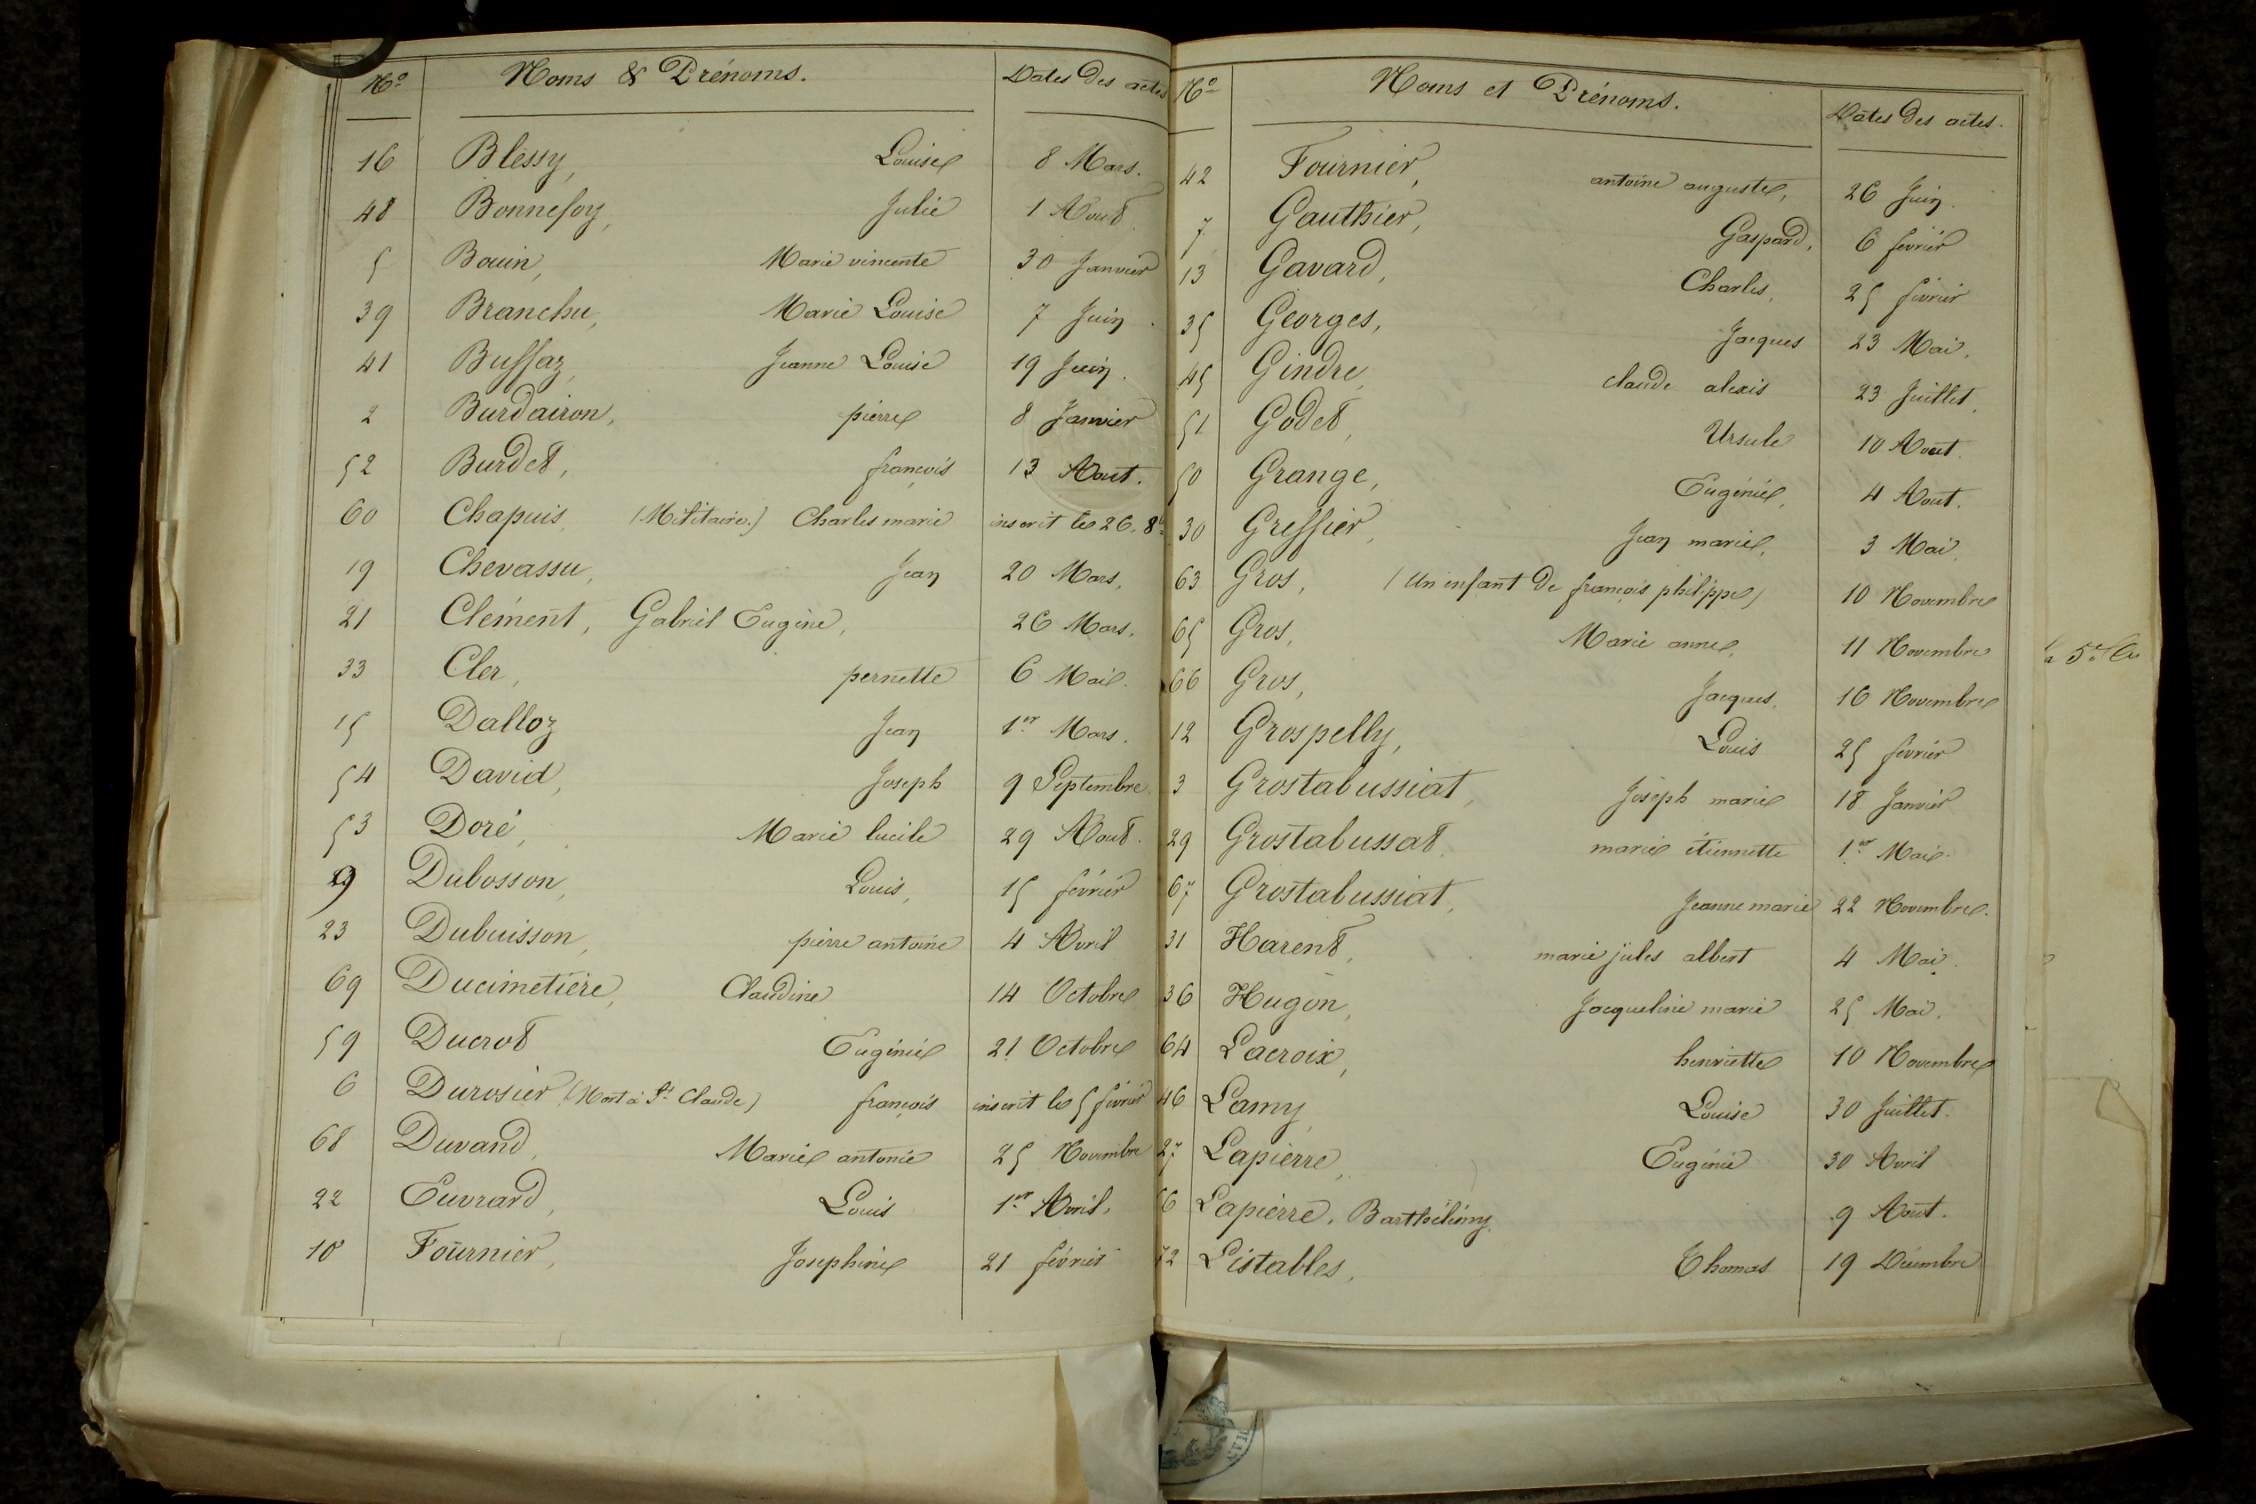 No Noms & Prénoms. Dates des actes
16 Blessy, Louise 8 Mars.
48 Bonnefoy, Julie 1 Aout
5 Bouin, Marie vincente 30 Janvier
39 Branchu, Marie Louise 7 Juin.
41 Buffaz, Jeanne Louise 19 Juin.
2 Burdairon, pierre 8 Janvier
52 Burdet, françois 13 Aout.
60 Chapuis (Militaire.) Charles marie inscrit le 26. 8b
19 Chevassu, Jean 20 Mars.
21 Clément, Gabriel Eugène, 26 Mars.
33 Cler, pernette 6 Mai.
15 Dalloz Jean 1er Mars.
54 David, Joseph 9 Septembre.
53 Doré, Marie lucile 29 Aout.
9 Dubosson, Louis, 15 février
23 Dubuisson, pierre antoine 4 Avril
69 Ducimetière, Claudine 14 Octobre
59 Ducrot Eugénie 21 Octobre
6 Durosier (Mort à St Claude) françois inscrit le 5 février
68 Duvand, Marie antonie 25 Novembre
22 Euvrard, Louis 1er Avril.
10 Fournier, Josephine 21 février
No Noms et Prénoms. Dates des actes.
42 Fournier, antoine auguste, 26 Juin.
7 Gauthier, Gaspard, 6 février
13 Gavard, Charles, 25 février
35 Georges, Jacques 23 Mai.
45 Gindre, claude alexis 23 Juillet.
51 Godet, Ursule 10 Aout.
50 Grange, Eugénie, 4 Aout.
30 Greffier, Jean marie, 3 Mai.
63 Gros, (Un enfant de françois philippe) 10 Novembre
65 Gros, Marie anne, 11 Novembre
66 Gros, Jacques, 16 Novembre
12 Grospelly, Louis 25 février
3 Grostabussiat, Joseph marie 18 Janvier
29 Grostabussat marie étiennette 1er Mai.
67 Grostabussiat, Jeanne marie 22 Novembre.
31 Harent, marie jules albert 4 Mai.
36 Hugon, Jacqueline marie 25 Mai.
64 Lacroix, henriette 10 Novembre
46 Lamy, Louise 30 Juillet.
27 Lapierre, Eugénie 30 Avril
6 Lapierre, Barthélémy. 9 Aout.
72 Listables, Thomas 19 Décembre